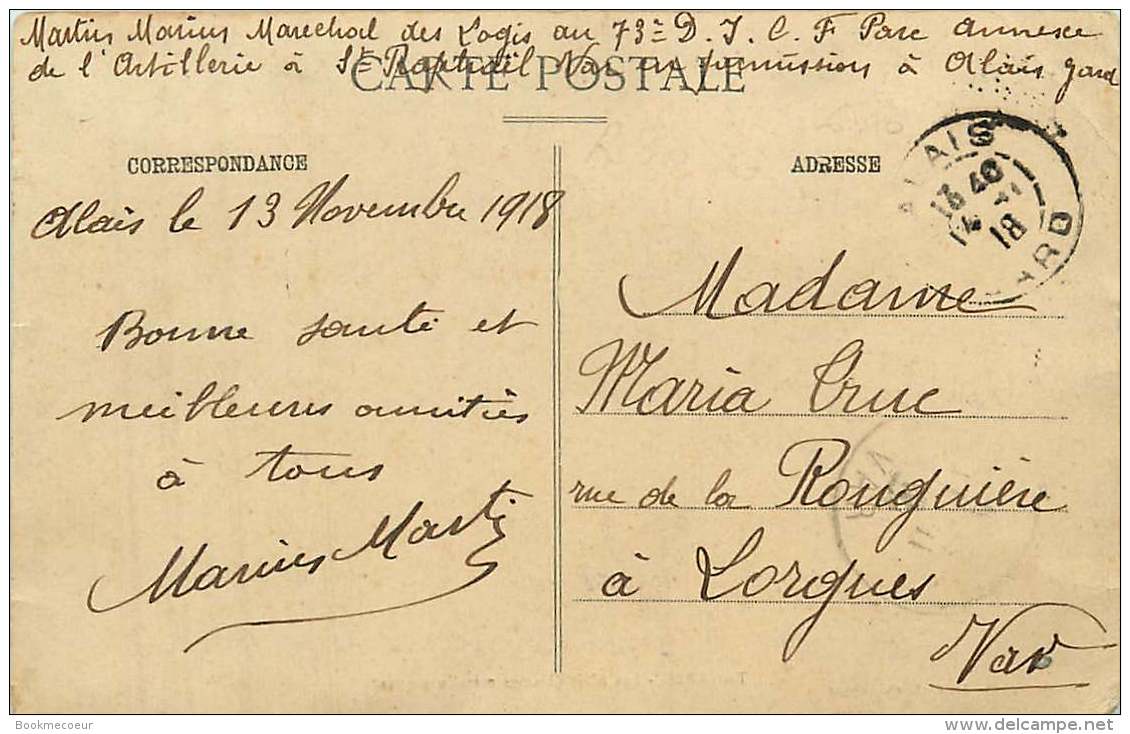 Martin Marius Marechal des Logis au 73e D. I. C. F Parc Annexe
de l'Artillerie à St Raphaël Var en permission à Alais Gard
CARTE POSTALE
CORRESPONDANCE
ADRESSE
ALAIS
18 40
18
GARD
Alais le 13 Novembre 1918
Bonne santé et
meilleures amitiés
à tous
Marius Martin
Madame
Maria Truc
rue de la Rouguière
à Lorgues
Var
VAR
Bookmecoeur
delcampe.net